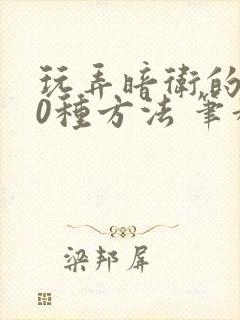 玩弄暗衛的
0種方法 筆
梁邦屏